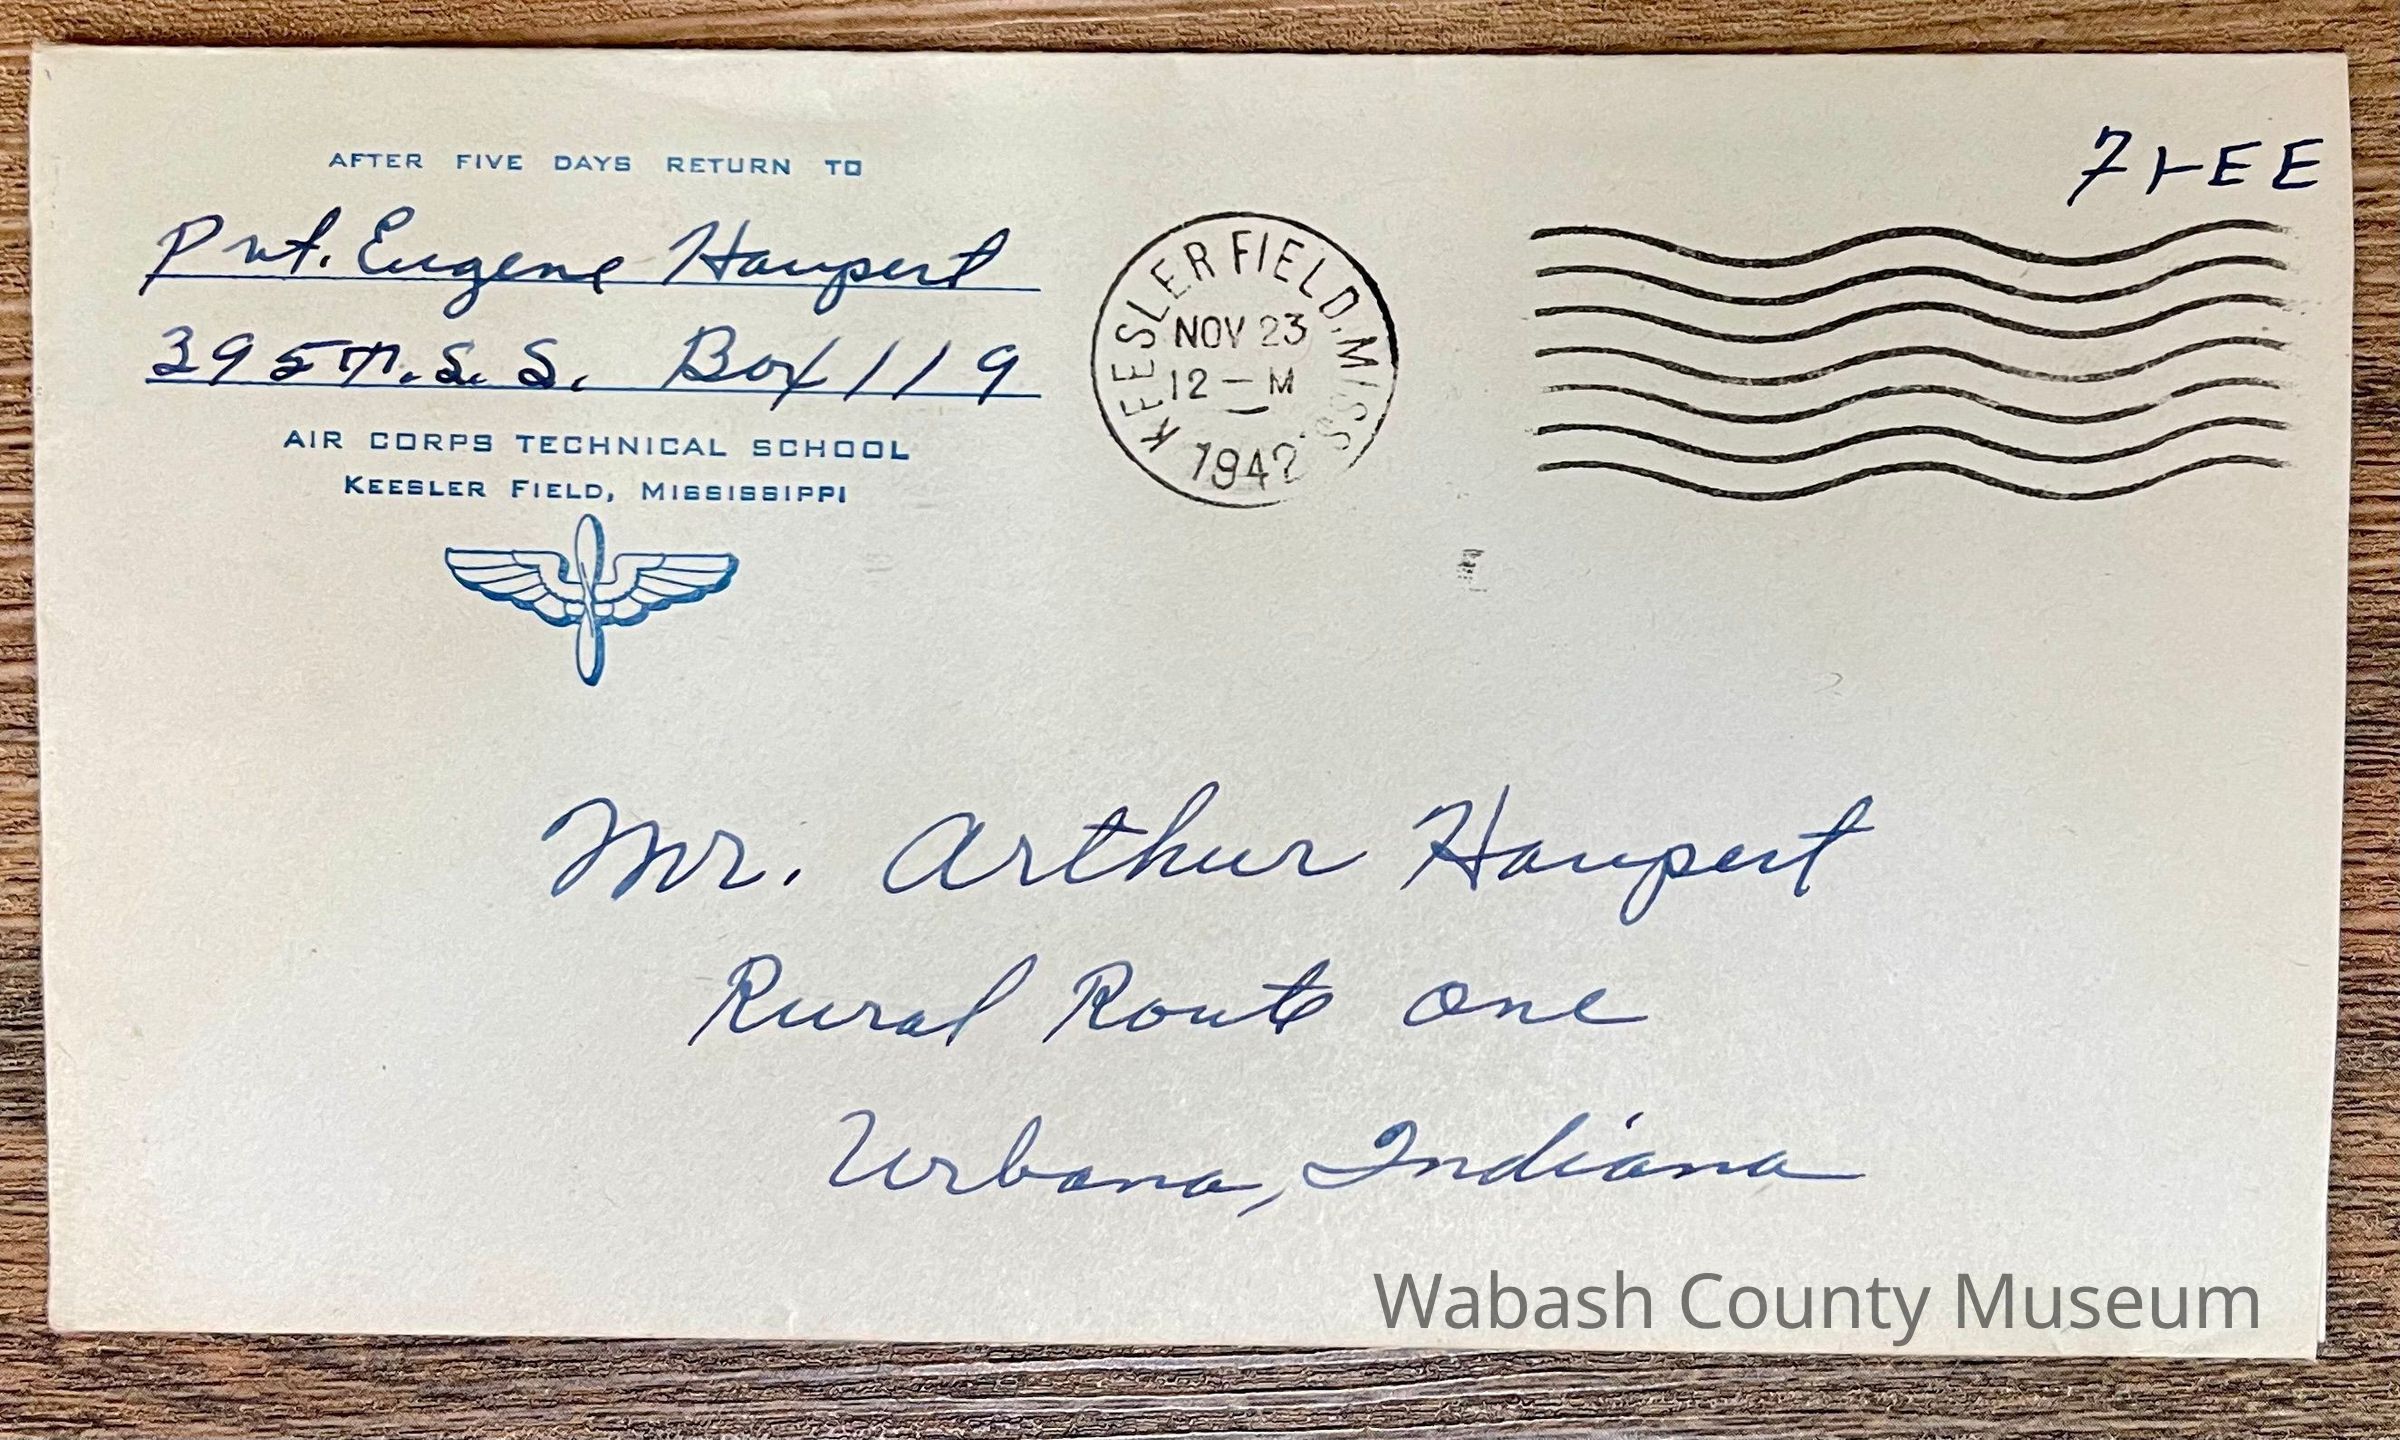 AFTER FIVE DAYS RETURN TO
Pvt. Eugene Haupert
395 T.S.S. Box 119
AIR CORPS TECHNICAL SCHOOL
KEESLER FIELD, MISSISSIPPI
KEESLER FIELD, MISS.
NOV 23
12 – M
1942
FrEE
Mr. Arthur Haupert
Rural Route One
Urbana, Indiana
Wabash County Museum